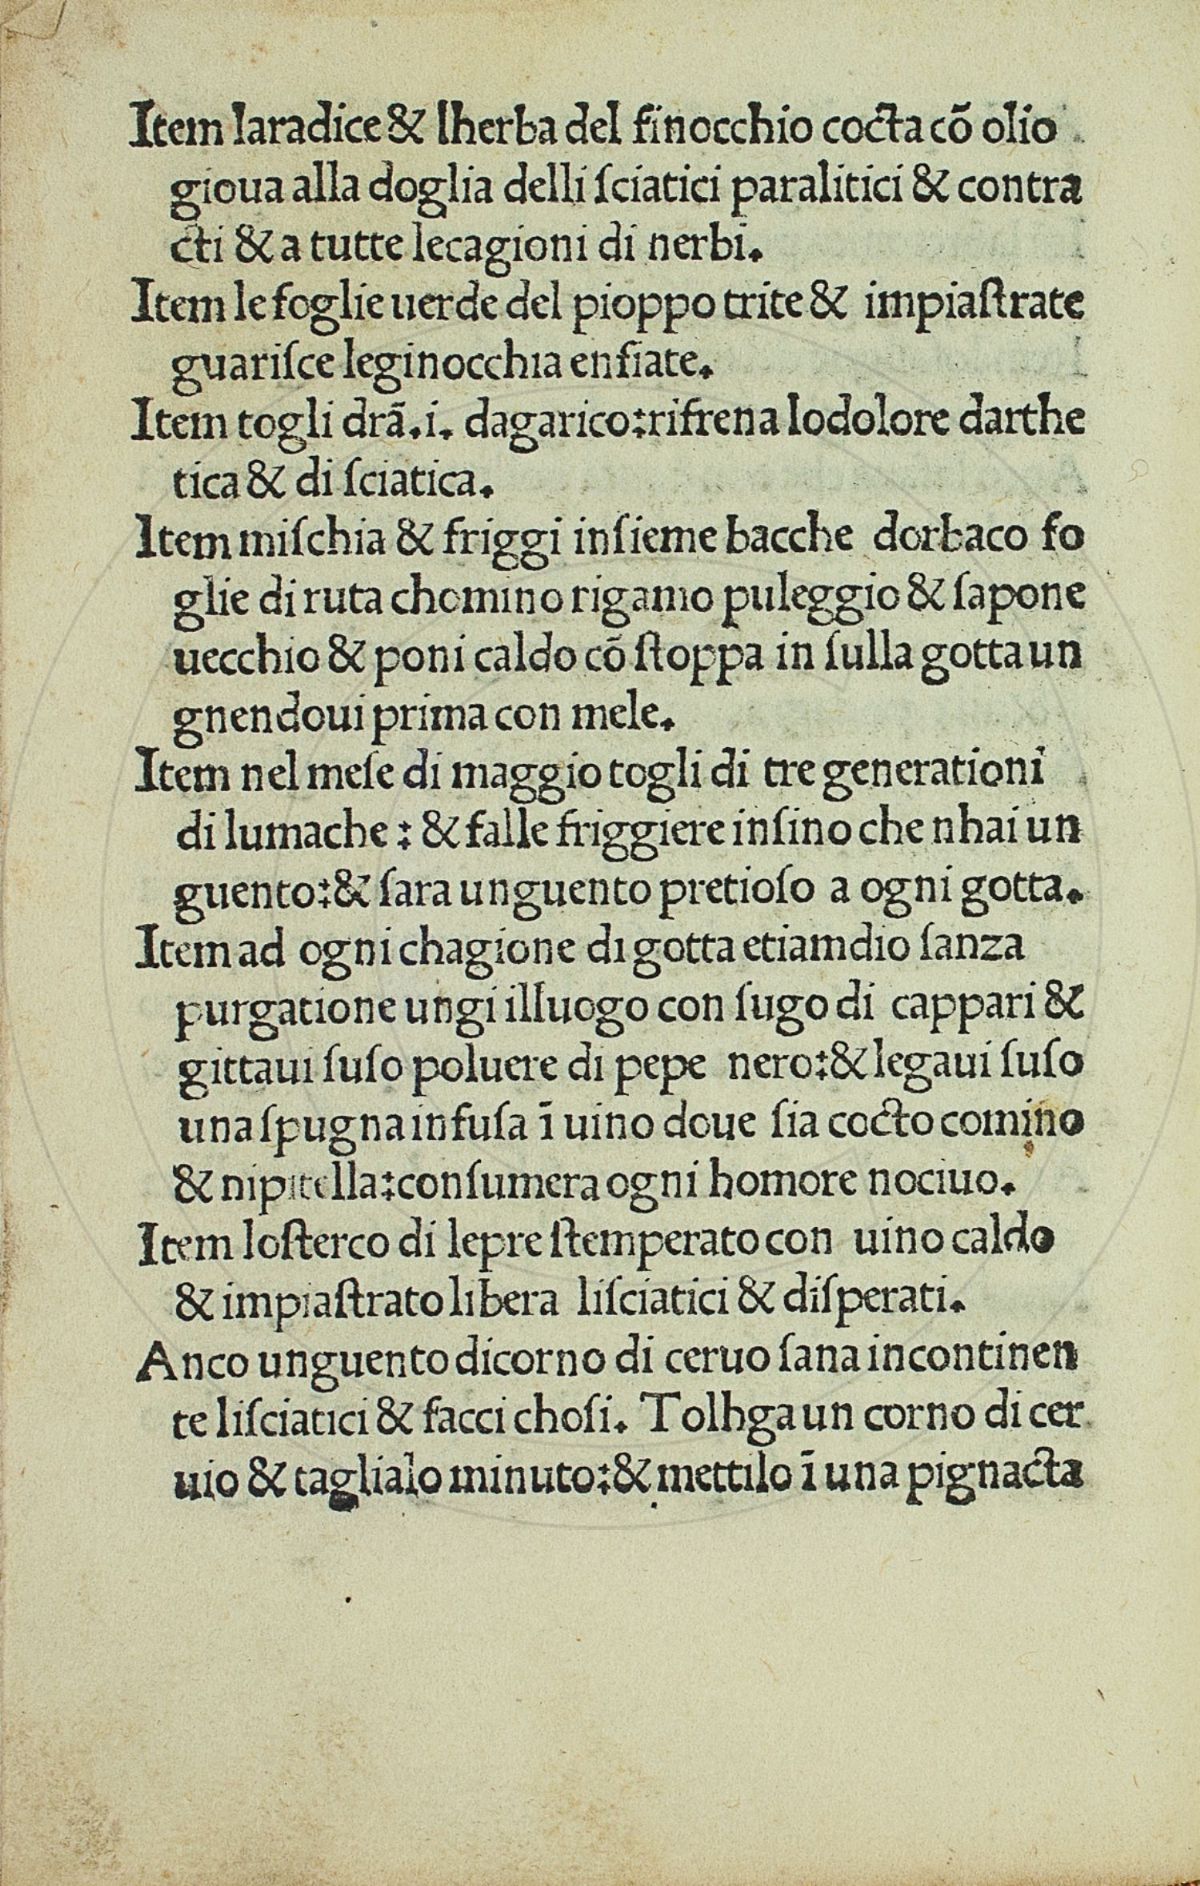 Item laradice & lherba del finocchio cocta cō olio
gioua alla doglia delli ſciatici paralitici & contra
cti & a tutte lecagioni di nerbi.
Item le foglie uerde del pioppo trite & impiaſtrate
guariſce leginocchia enfiate.
Item togli drā.i. dagarico:rifrena lodolore darthe
tica & di ſciatica.
Item miſchia & friggi inſieme bacche dorbaco fo
glie di ruta chomino rigamo puleggio & ſapone
uecchio & poni caldo cō ſtoppa in ſulla gotta un
gnendoui prima con mele.
Item nel meſe di maggio togli di tre generationi
di lumache : & falle friggiere inſino che nhai un
guento:& ſara unguento pretioſo a ogni gotta.
Item ad ogni chagione di gotta etiamdio ſanza
purgatione ungi illuogo con ſugo di cappari &
gittaui ſuſo poluere di pepe nero:& legaui ſuſo
una ſpugna infuſa ī uino doue ſia cocto comino
& nipitella:conſumera ogni homore nociuo.
Item loſterco di lepre ſtemperato con uino caldo
& impiaſtrato libera liſciatici & diſperati.
Anco unguento dicorno di ceruo ſana incontinen
te liſciatici & facci choſi. Tolhga un corno di cer
uio & taglialo minuto:& mettilo ī una pignacta